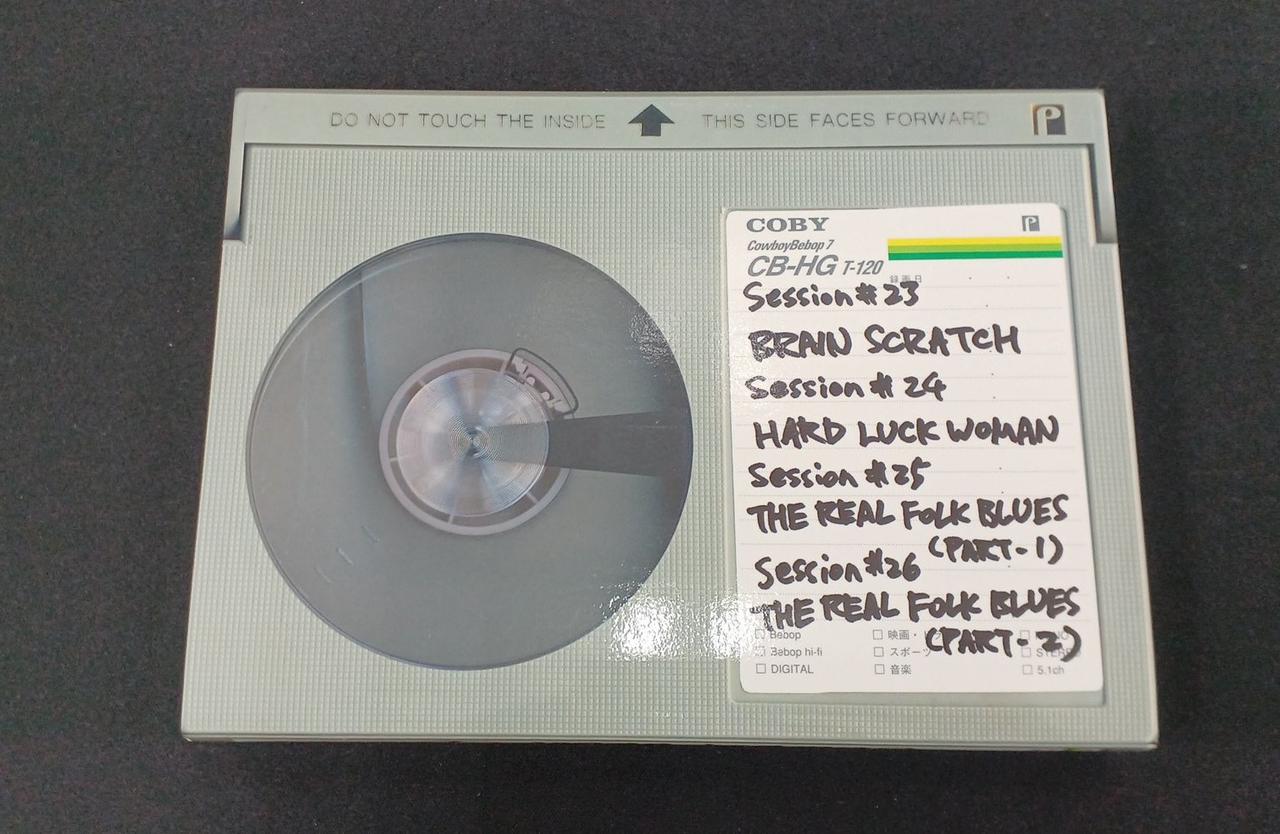 DO NOT TOUCH THE INSIDE THIS SIDE FACES FORWARD
COBY
CowboyBebop 7
CB-HG T-120
録画日
Session#23
BRAIN SCRATCH
Session#24
HARD LUCK WOMAN
Session #25
THE REAL FOLK BLUES
(PART-1)
Session#26
THE REAL FOLK BLUES
(PART-2)
Bebop 映画・
Bebop hi-fi スポーツ
DIGITAL 音楽 5.1ch